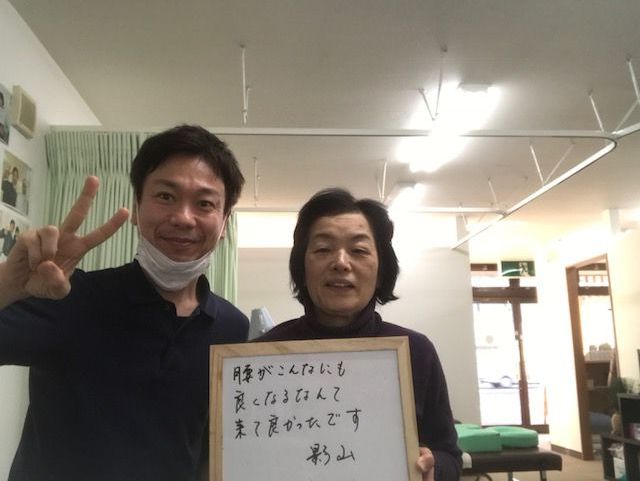 腰がこんなにも
良くなるなんて
来て良かったです
影山